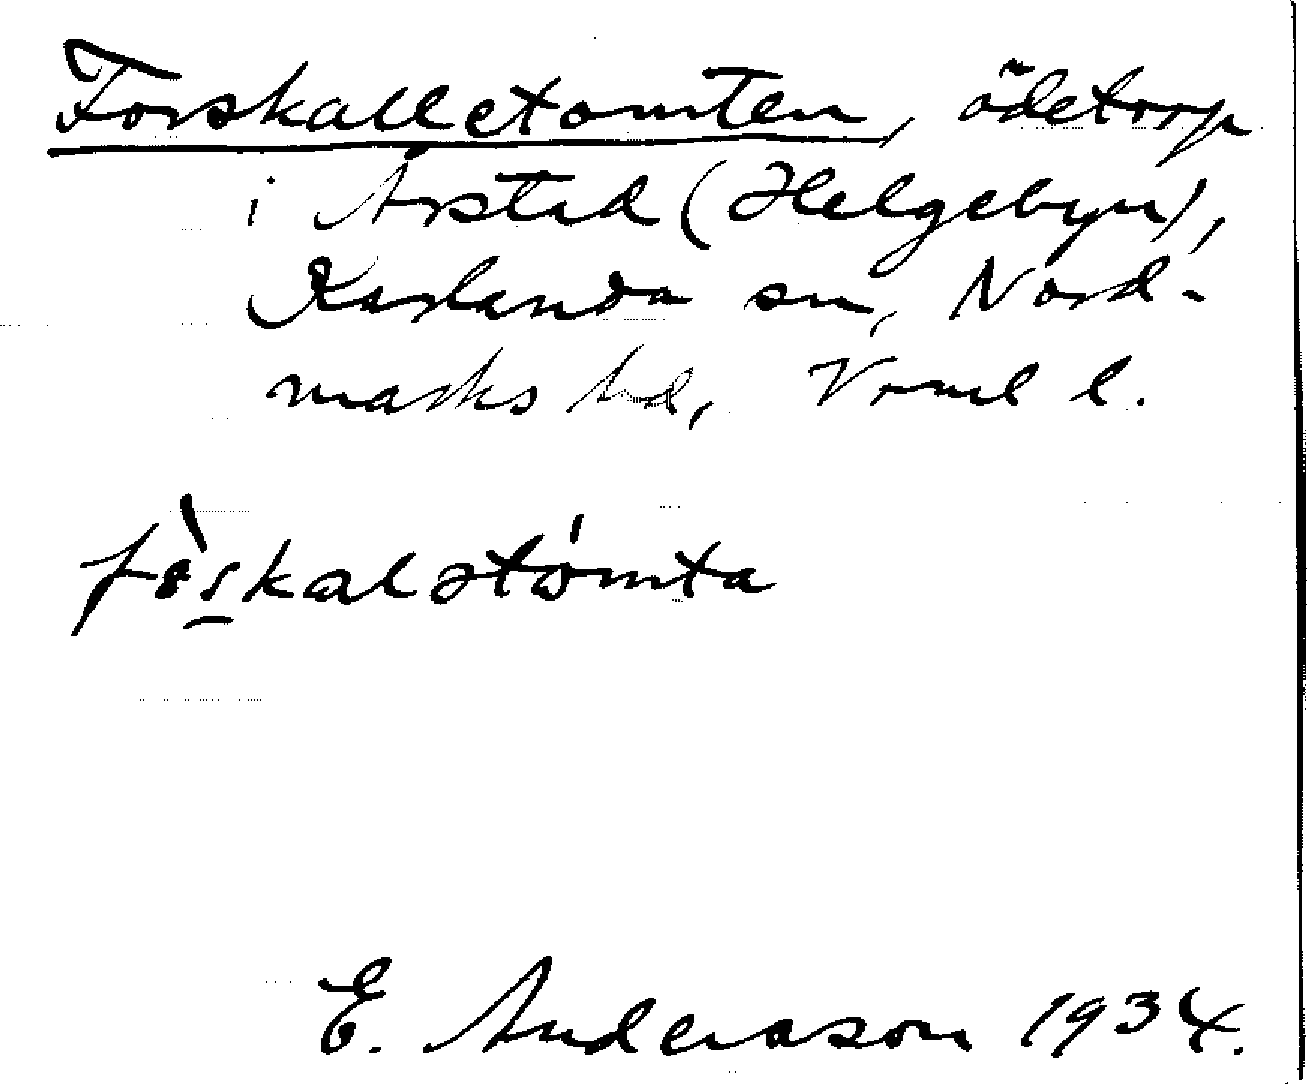 Forskalletomten, ödetorp
i Årstad (Helgebyn),
Karlanda sn, Nord-
marks hd, Vrml l.
fɵ̀skalətómta
E. Andersson 1934.